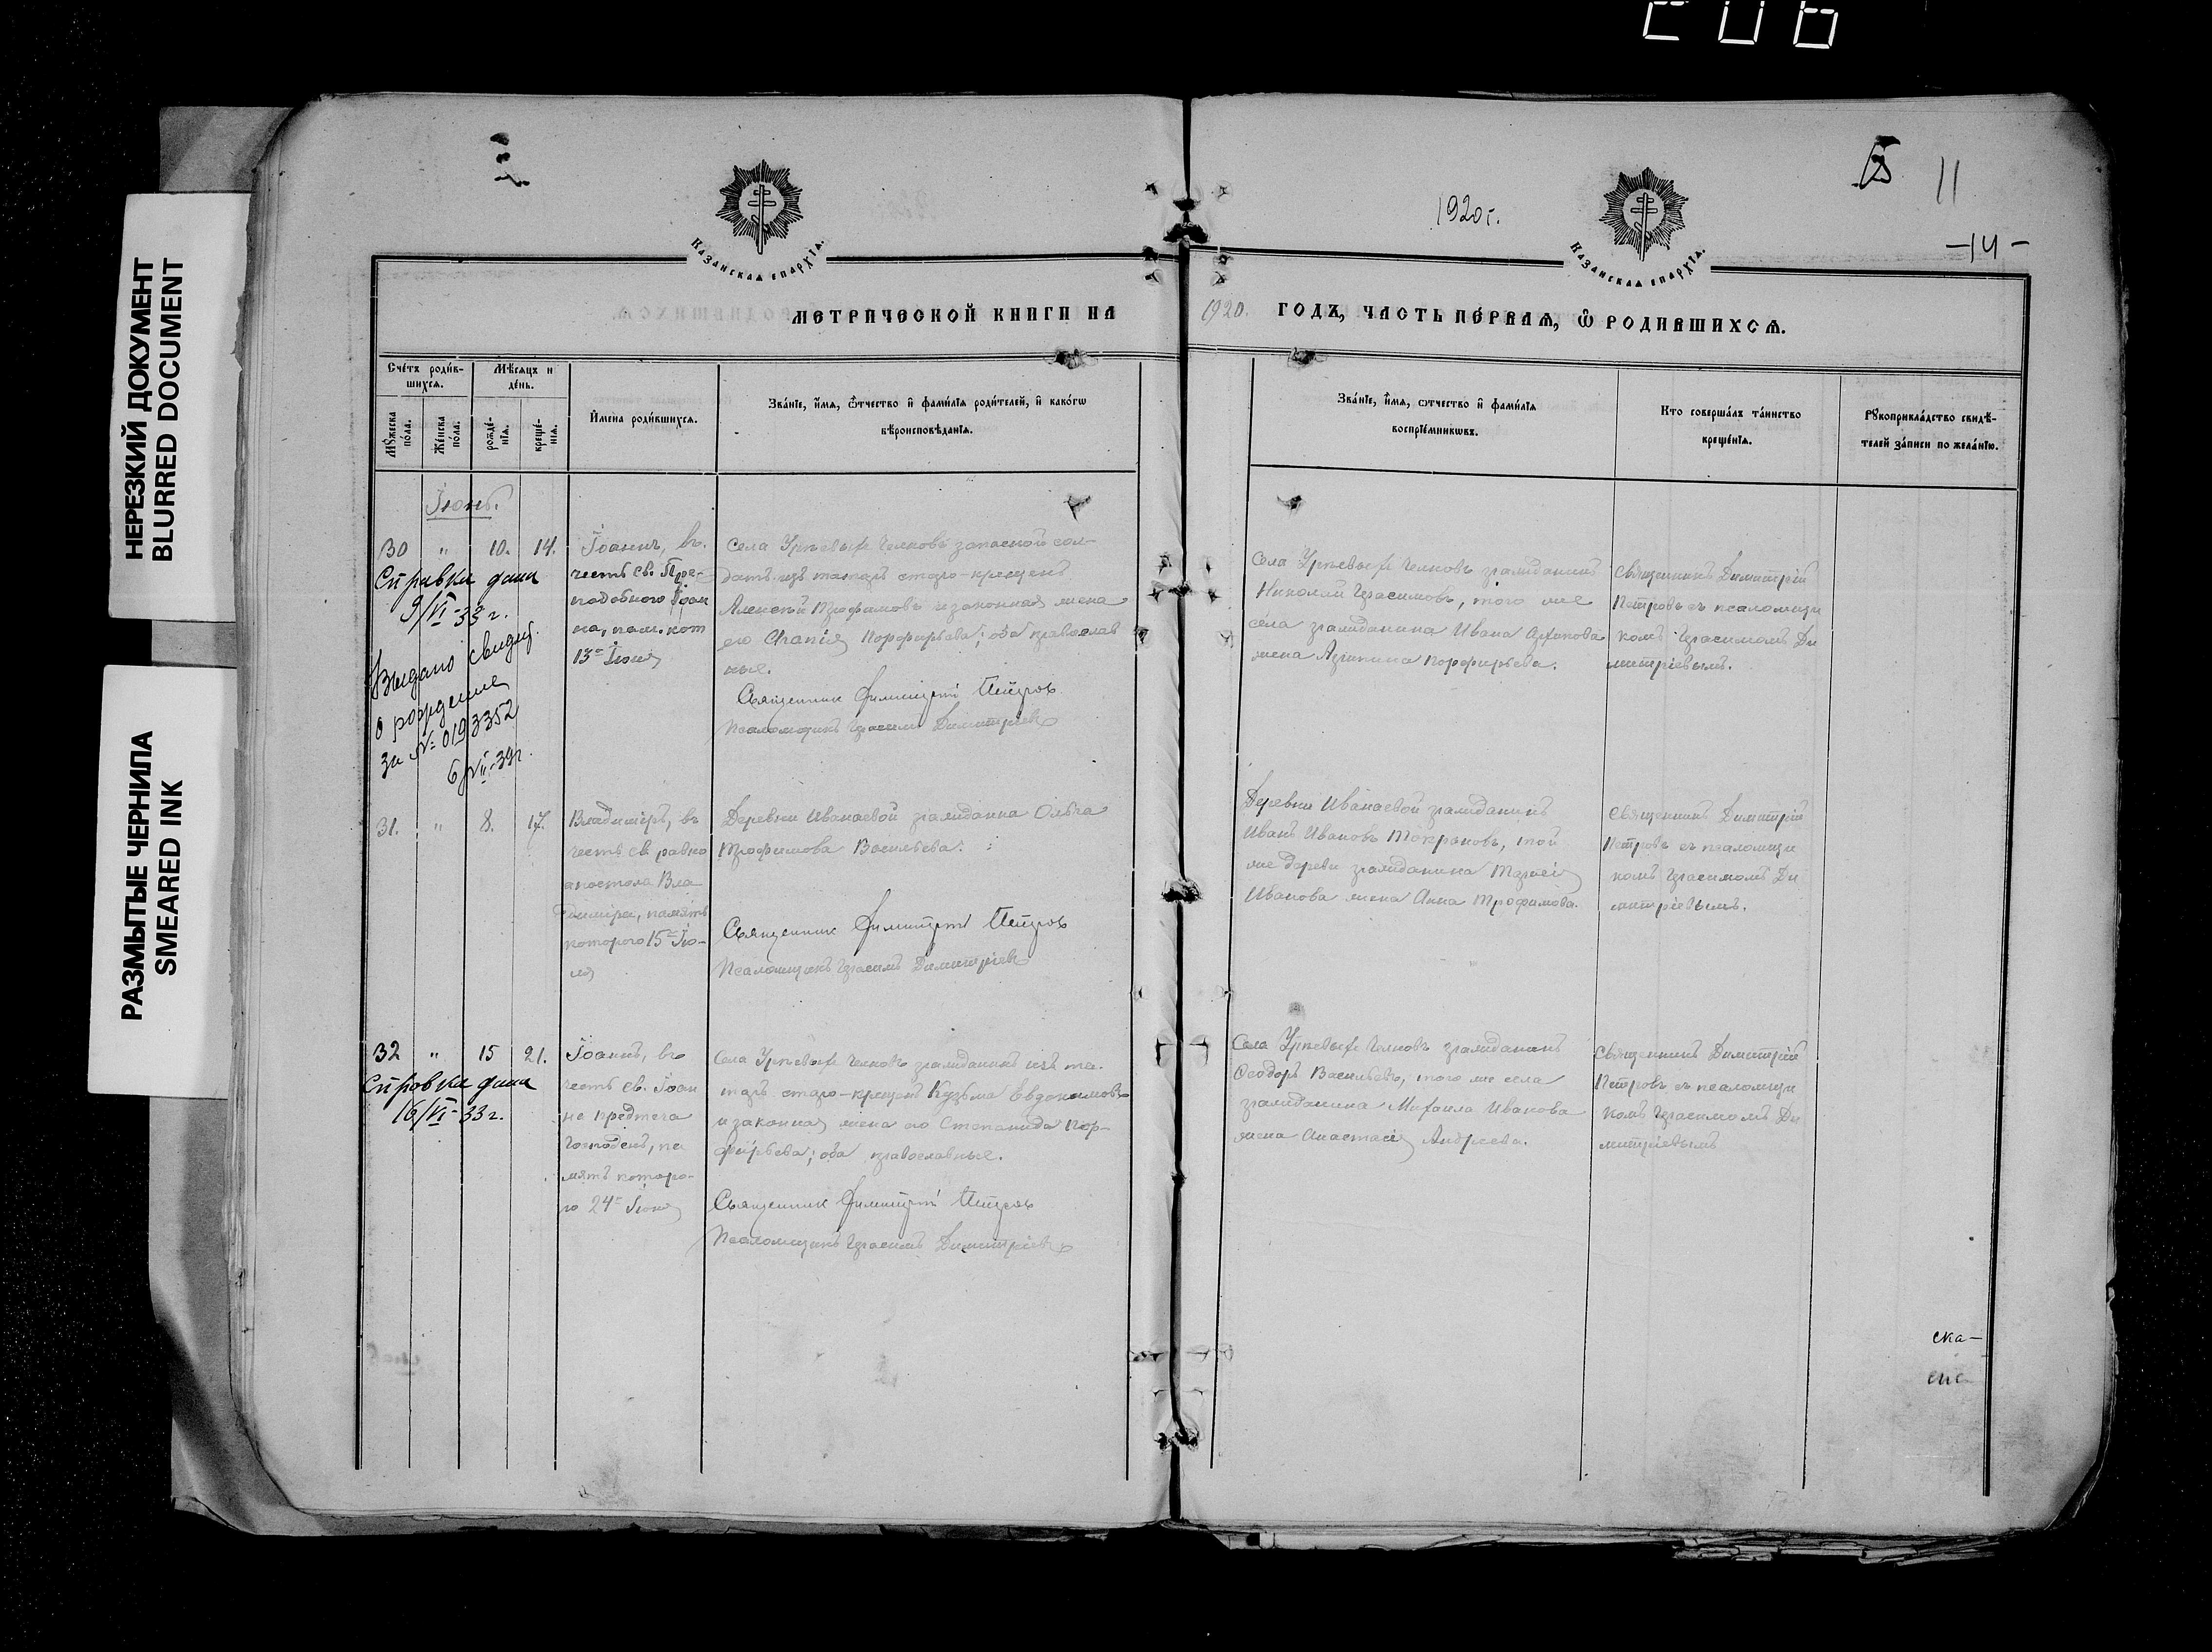 206
НЕРЕЗКИЙ ДОКУМЕНТ
BLURRED DOCUMENT
РАЗМЫТЫЕ ЧЕРНИЛА
SMEARED INK
1920 г.
11
-14-
КАЗАНСКАЯ ЕПАРХІЯ.
КАЗАНСКАЯ ЕПАРХІЯ.
МЕТРИЧЕСКОЙ КНИГИ НА 1920. ГОДЪ, ЧАСТЬ ПЕРВАЯ, Ѡ РОДИВШИХСЯ.
Счетъ родив-
шихся.
Мужеска
пола.
Женска
пола.
Мѣсяцъ и
день.
рожде-
нія.
креще-
нія.
Имена родившихся.
Званіе, имя, ѻтчество и фамилія родителей, и какогѡ
вѣроисповѣданія.
Званіе, имя, ѻтчество и фамилія
воспріемникѡвъ.
Кто совершалъ таинство
крещенія.
Рукоприкладство свидѣ-
телей записи по желанію.
Іюнь.
30 " 10. 14.
Справка дана
9/VI-33 г.
Выдано свидет.
о рождение
за № 0193352
6/VII-39г.
Іоаннъ, въ
честь св. Пре-
подобного Іоан
на, пам. кот
13го Іюня
Села
запасной сол-
датъ изъ татаръ старо-крещенъ
Алексѣй и законная жена
его Порфирьева; оба православ
ные.
Священник Димитрий Петров
Псаломщикъ Герасимъ Димитріевъ
Села гражданинъ
Николай Герасимовъ, того же
села гражданина Ивана
жена Порфирьева.
Священникъ Димитрій
Петровъ съ псаломщи
комъ Герасимомъ Ди
митріевымъ.
31. " 8. 17.
Владиміръ, въ
честь св. равно
апостола Вла
диміра, память
которого 15го Ію-
ля
Деревни Иванаевой гражданка Ольга
Трофимова Васильева.
Священник Димитрий Петров
Псаломщикъ Герасимъ Димитріевъ
Деревни Иванаевой гражданинъ
Иванъ Ивановъ той
же деревни гражданина
Иванова жена Анна Трофимова.
Священникъ Димитрій
Петровъ съ псаломщи
комъ Герасимомъ Ди
митріевымъ.
32 " 15 21.
Справка дана
16/VI-33 г.
Іоаннъ, въ
честь св. Іоан
на предтеча
Господень, па
мять которо-
го 24го Іюня
Села гражданинъ изъ та-
таръ старо-крещенъ Кузьма Евдокимовъ
и законная жена его Степанида Пор-
фирьева; оба православные.
Священник Димитрий Петров
Псаломщикъ Герасимъ Димитріевъ
Села гражданинъ
Ѳеодоръ Васильевъ, того же села
гражданина Михаила Иванова
жена Анастасія Андреева.
Священникъ Димитрій
Петровъ съ псаломщи
комъ Герасимомъ Ди
митріевымъ
ска-